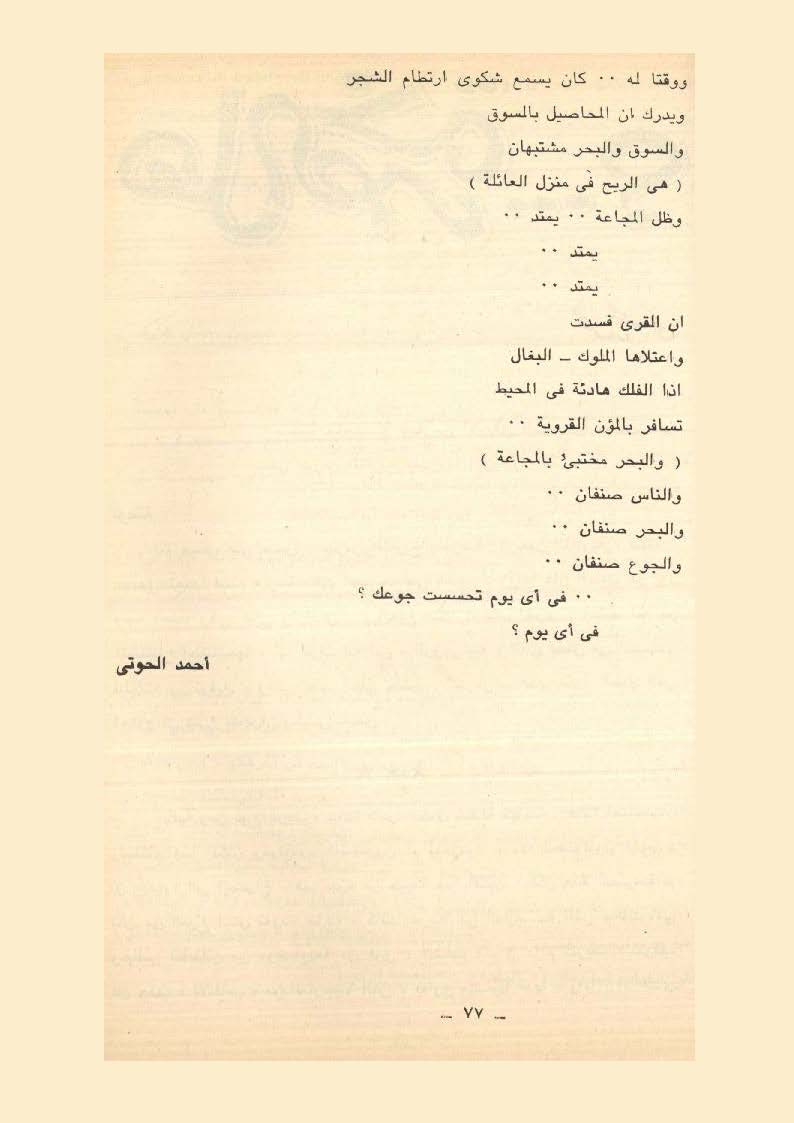 ووقتا له ·· كان يسمع شكوى ارتطام الشجر
ويدرك ان المحاصيل بالسوق
والسوق والبحر مشتبهان
( هى الريح فى منزل العائلة )
وظل المجاعة ·· يمتد ··
يمتد ··
يمتد ··
ان القرى فسدت
واعتلاها الملوك ــ البغال
اذا الفلك هادئة فى المحيط
تسافر بالمؤن القروية ··
( والبحر مختبئ بالمجاعة )
والناس صنفان ··
والبحر صنفان ··
والجوع صنفان ··
·· فى أى يوم تحسست جوعك ؟
فى أى يوم ؟
أحمد الحوتى
ــ ٧٧ ــ